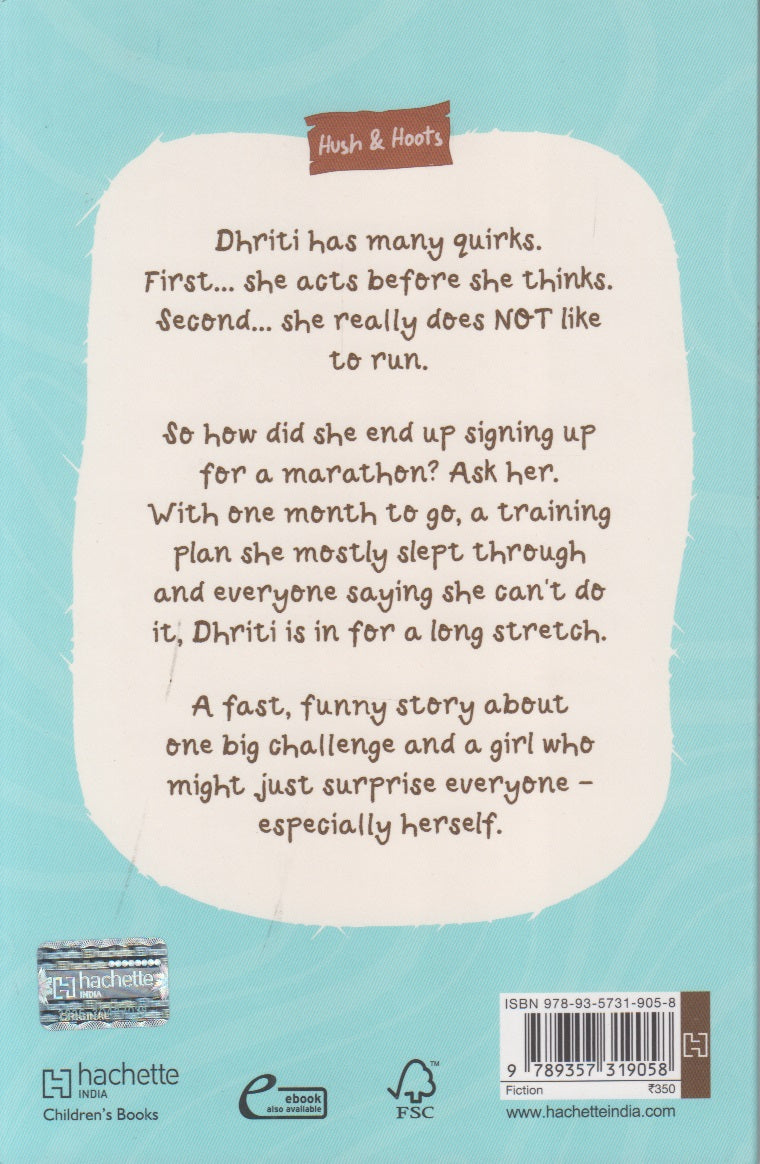 Hush & Hoots
Dhriti has many quirks.
First... she acts before she thinks.
Second... she really does NOT like
to run.
So how did she end up signing up
for a marathon? Ask her.
With one month to go, a training
plan she mostly slept through
and everyone saying she can't do
it, Dhriti is in for a long stretch.
A fast, funny story about
one big challenge and a girl who
might just surprise everyone –
especially herself.
hachette
INDIA
ORIGINAL
hachette
INDIA
Children's Books
ebook
also available
FSC
TM
ISBN 978-93-5731-905-8
9 789357 319058
Fiction ₹350
www.hachetteindia.com